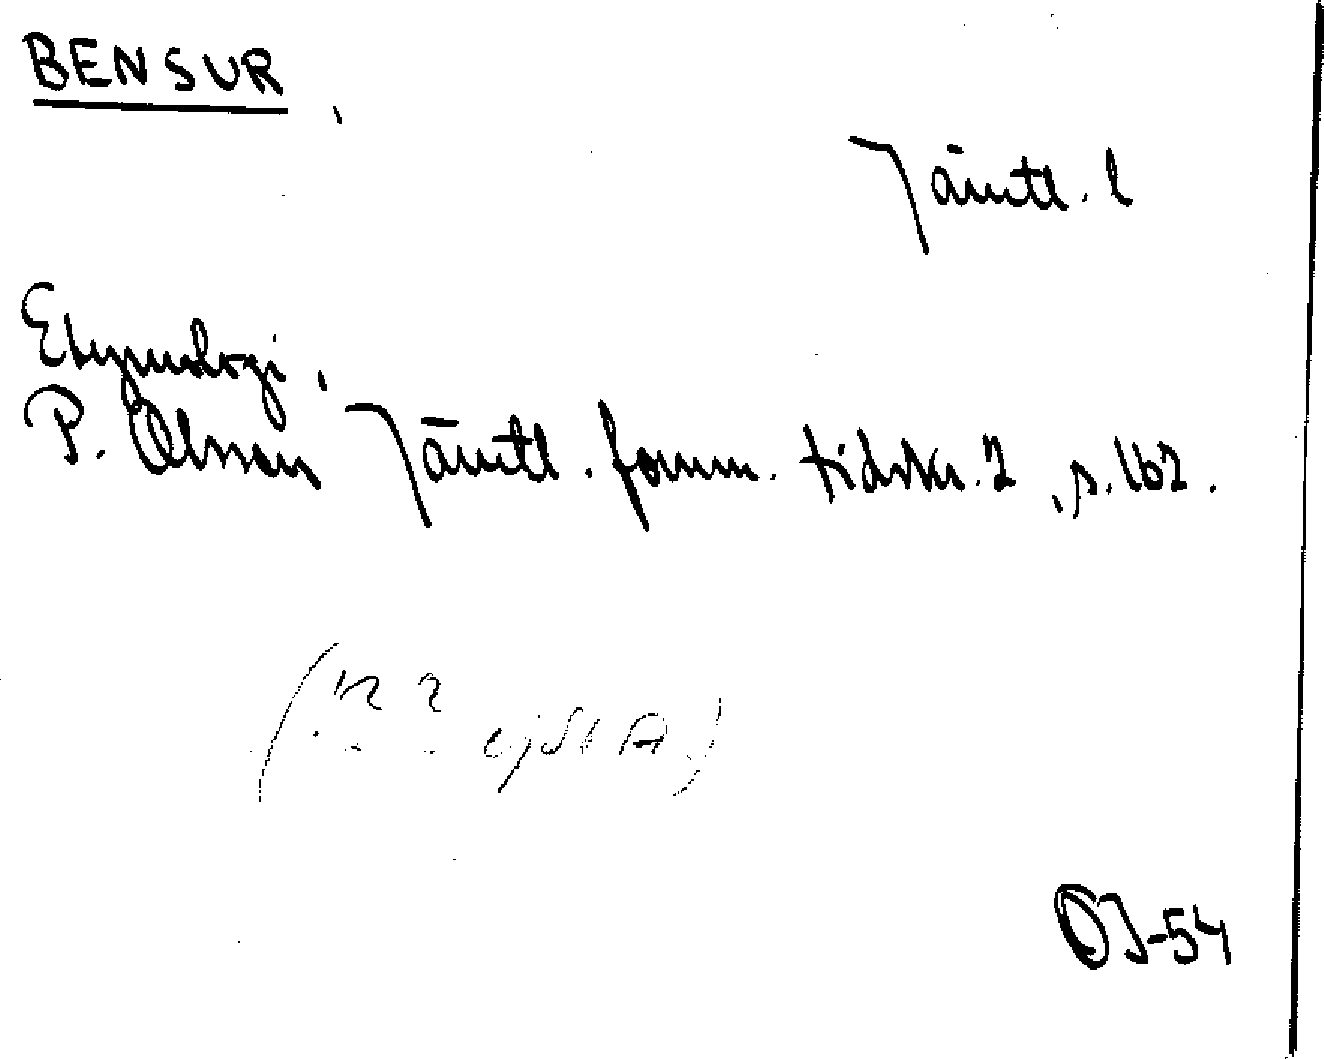 BENSUR,
Jämtl. l
Etymologi,
P. Olsson Jämtl. fornm. tidskr. 2, s. 162.
OJ-54